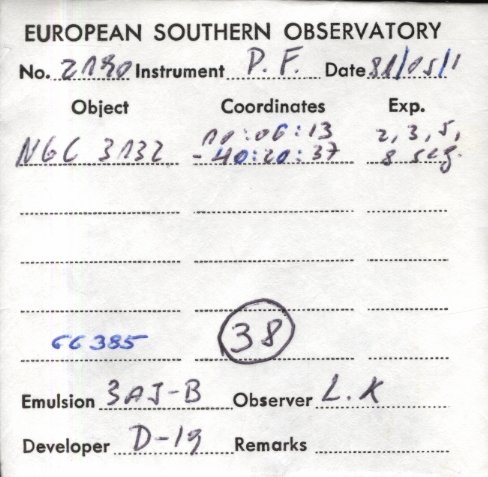 EUROPEAN SOUTHERN OBSERVATORY
No. 2190 Instrument P. F. Date 81/05/1
Object Coordinates Exp.
10:06:13 2, 3, 5,
NGC 3132 -40:20:37 8 seg.
GG 385 38
Emulsion 3AJ-B Observer L. K
Developer D-19 Remarks